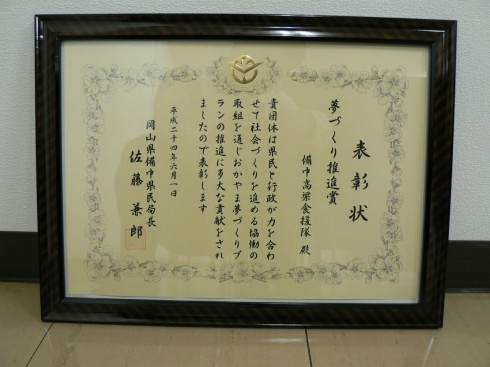 表彰状
夢づくり推進賞
備中高梁食援隊 殿
貴団体は県民と行政が力を合わ
せて社会づくりを進める協働の
取組を通じおかやま夢づくりプ
ランの推進に多大な貢献をされ
ましたので表彰します
平成二十四年六月一日
岡山県備中県民局長
佐藤兼郎